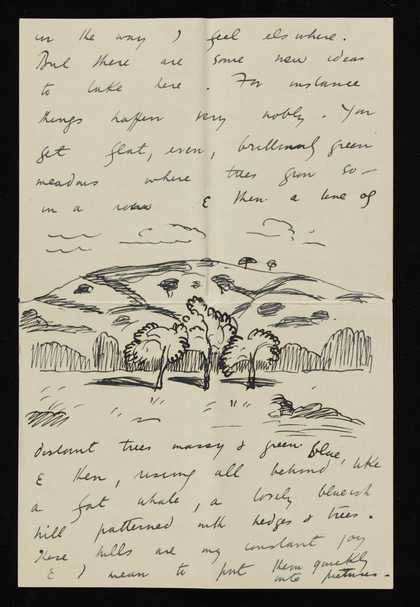 in the way I feel elsewhere.
But there are some new ideas
to take here. For instance
things happen very nobly. You
get flat, even, brilliantly green
meadows where trees grow so—
in a row & then a line of
distant trees massy & green blue,
& then, rising all behind like
a fat whale, a lovely blueish
hill patterned with hedges & trees.
These hills are my constant joy
& I mean to put them quickly
into pictures.